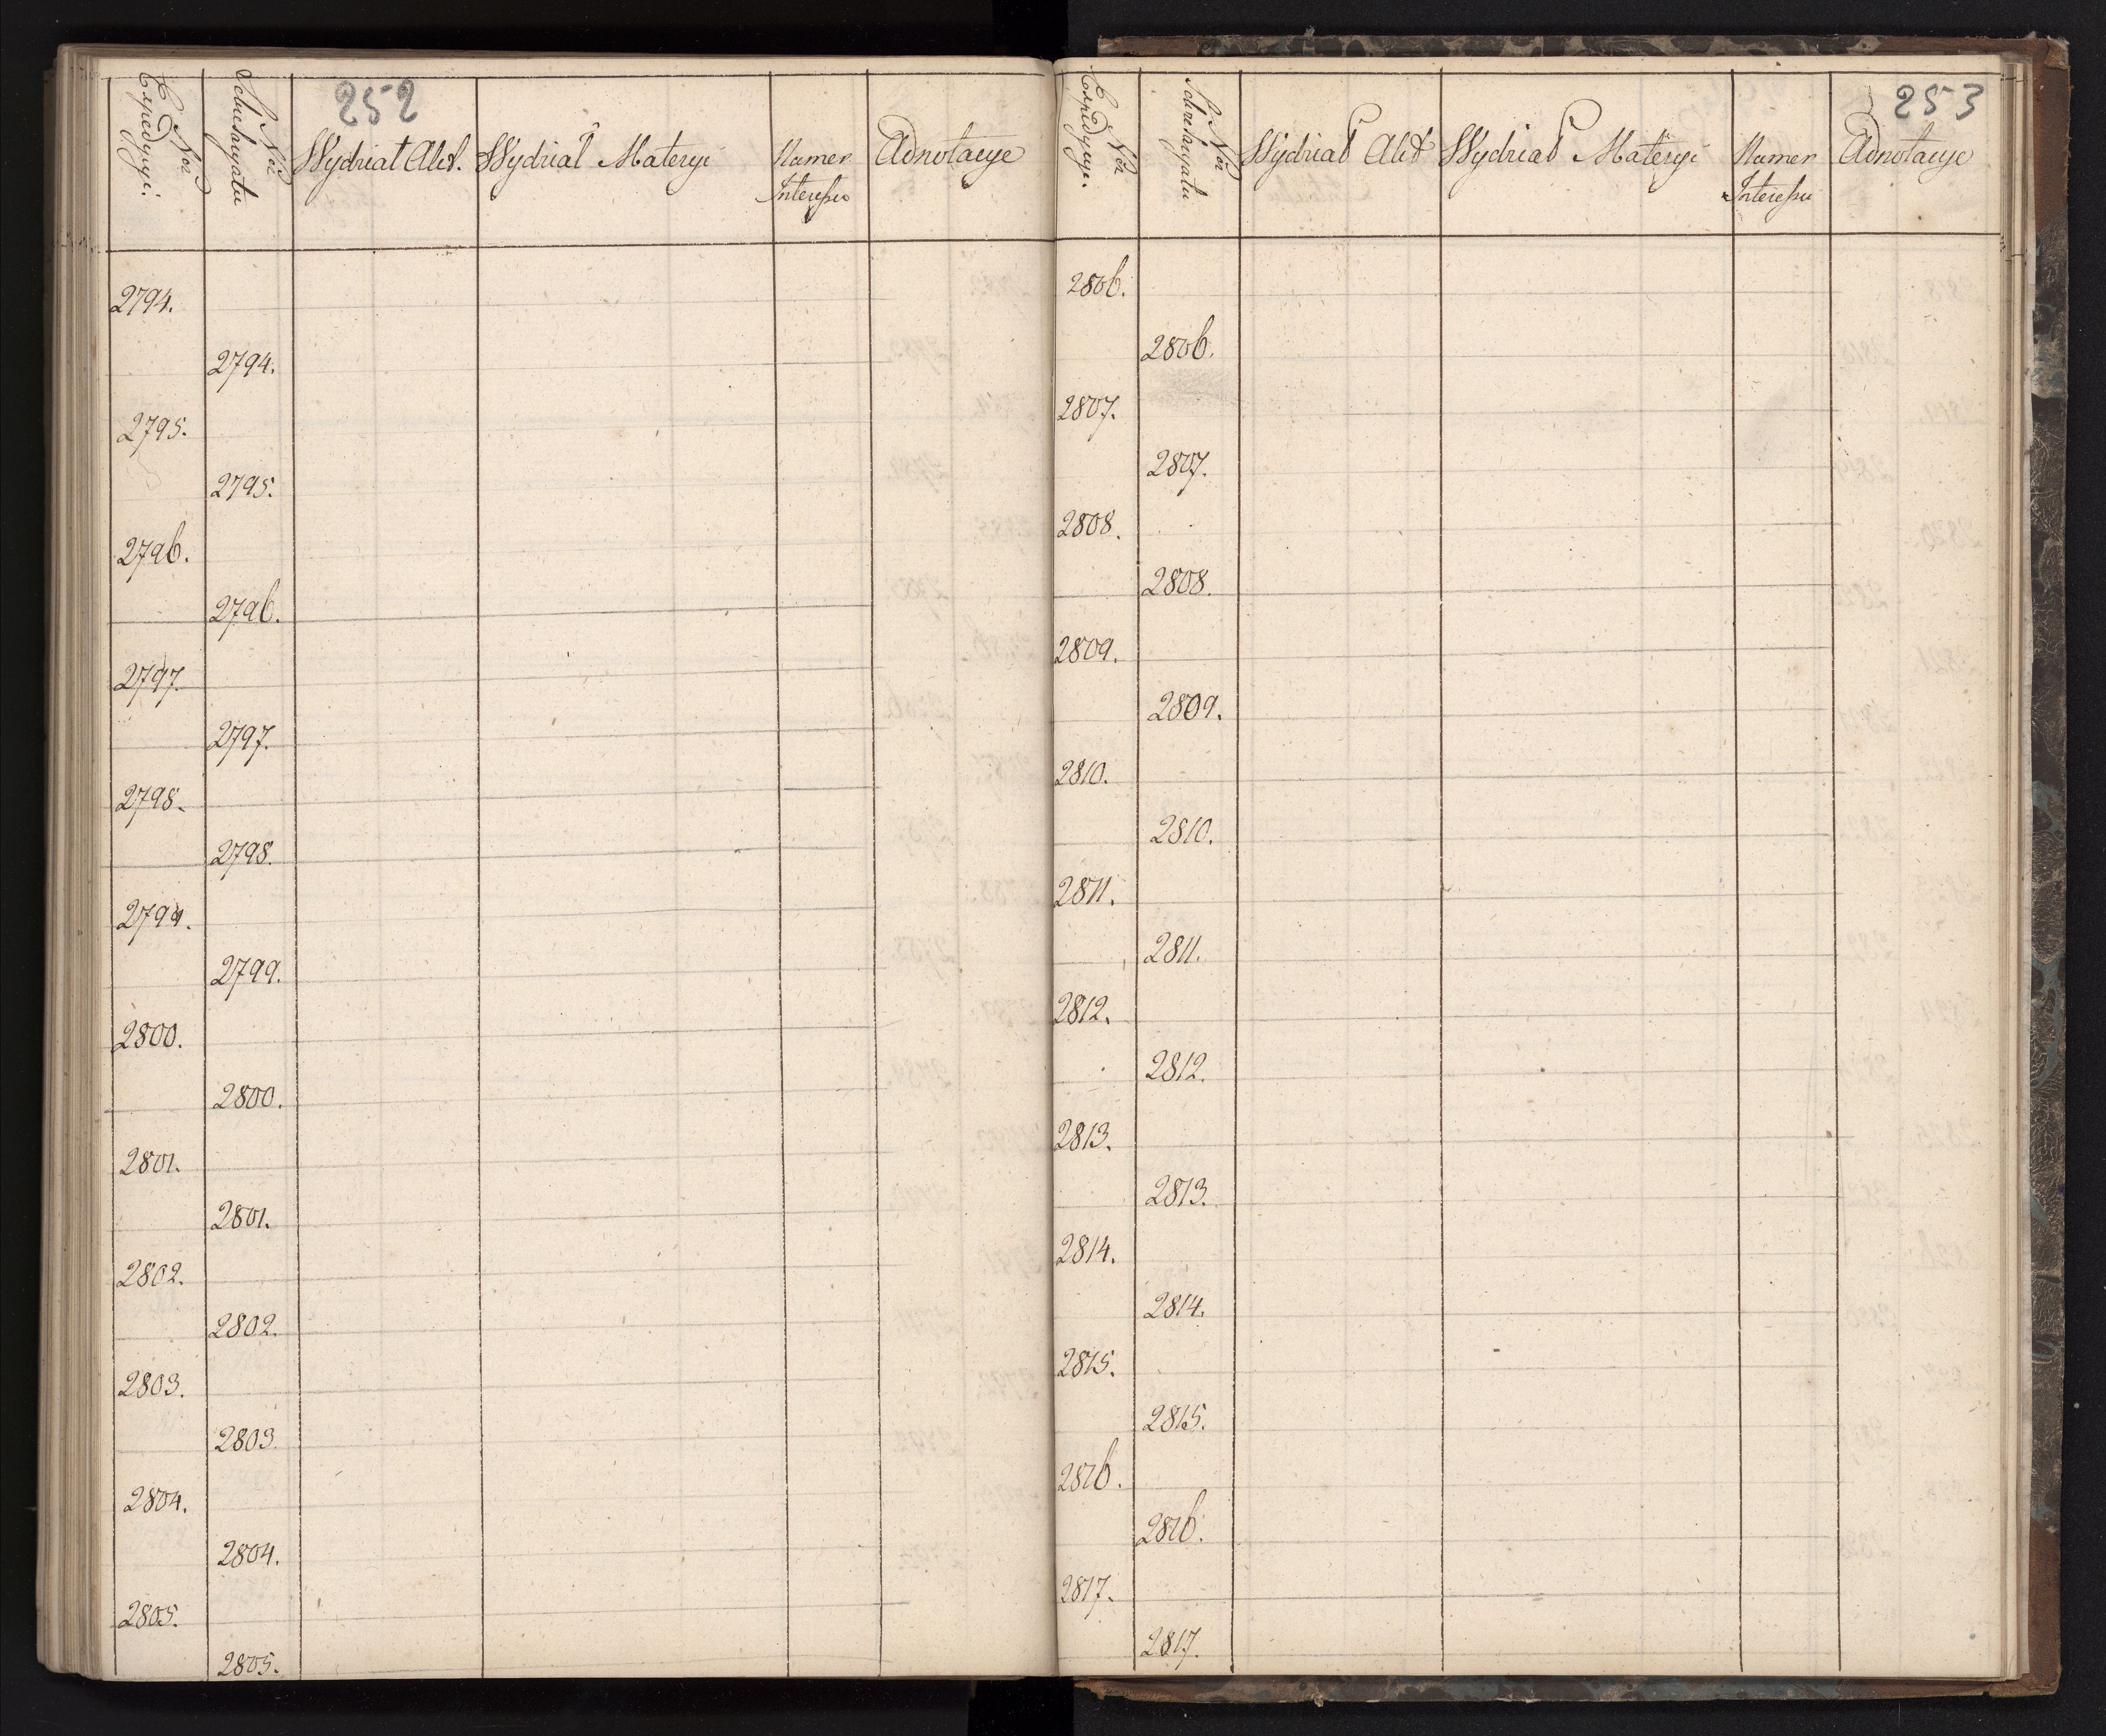 252
Nor Expedycyi.
Nor Sekretaryatu
Wydział Akt.
Wydział Materyi
Numer Interessu
Adnotacye
2794.
2794.
2795.
2795.
2796.
2796.
2797.
2797.
2798.
2798.
2799.
2799.
2800.
2800.
2801.
2801.
2802.
2802.
2803.
2803
2804.
2804.
2805.
2805.
253
Nor Expedycyi.
Nor Sekretaryatu
Wydział Akt
Wydział Materyi
Numer Interessu
Adnotacye
2806.
2806.
2807.
2807.
2808.
2808.
2809.
2809.
2810.
2810.
2811.
2811.
2812.
2812.
2813.
2813.
2814.
2814.
2815.
2815.
2816.
2816.
2817.
2817.